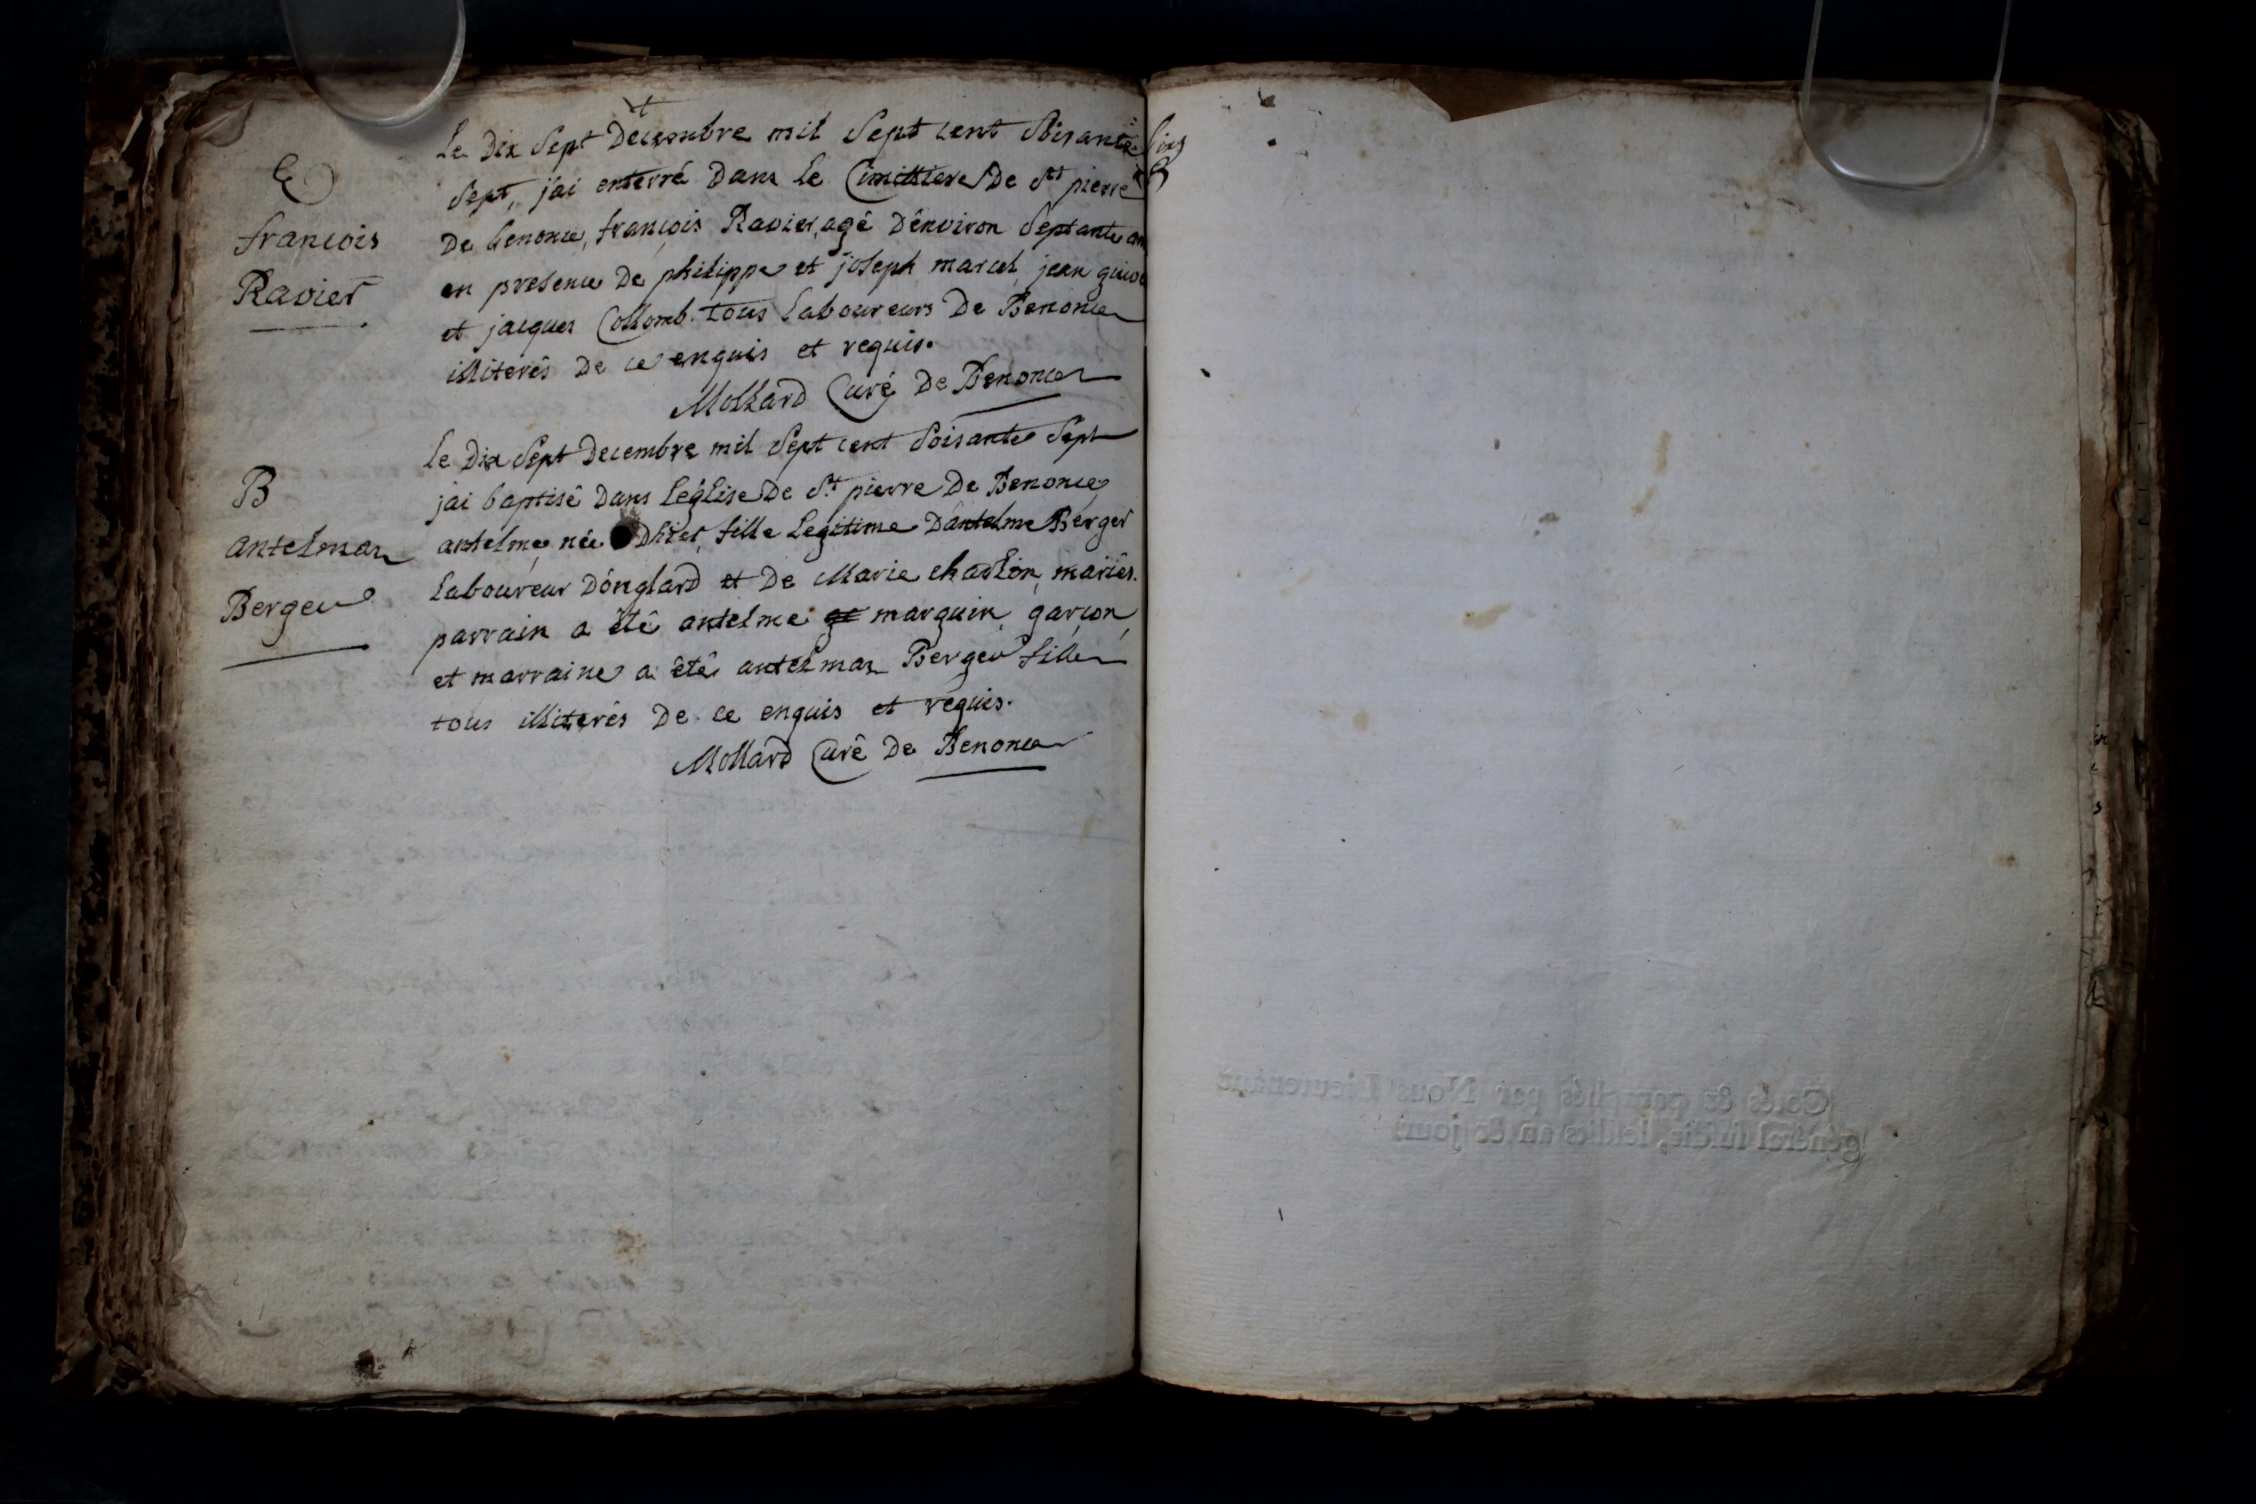 E
françois
Ravier
Le Dix Sept Decembre mil Sept cent Soisante
Sept, j'ai enterré Dans Le Cimittiere De St pierre
De benonce, françois Ravier, agé D'environ Septante an
en presence De philippe et joseph marcel, jean
et jacques Collomb. tous Laboureurs De Benonce
illiterés De ce enquis et requis.
Mollard Curé De Benonce
B
antelmaz
Berger
Le Dix Sept Decembre mil Sept cent Soisante Sept
jai baptisé Dans Léglise De St pierre De Benonce
antelme, née D'hier, fille Legitime D'antelme Berger
Laboureur D'onglard et De Marie chaslon, mariés.
parrain a été antelme marquin garçon,
et marraine a été antelmaz Berger fille
tous illiterés De ce enquis et requis.
Mollard Curé De Benonce
Cotés & paraphés par Nous Lieutenant
général susdit, lesdits an & jour